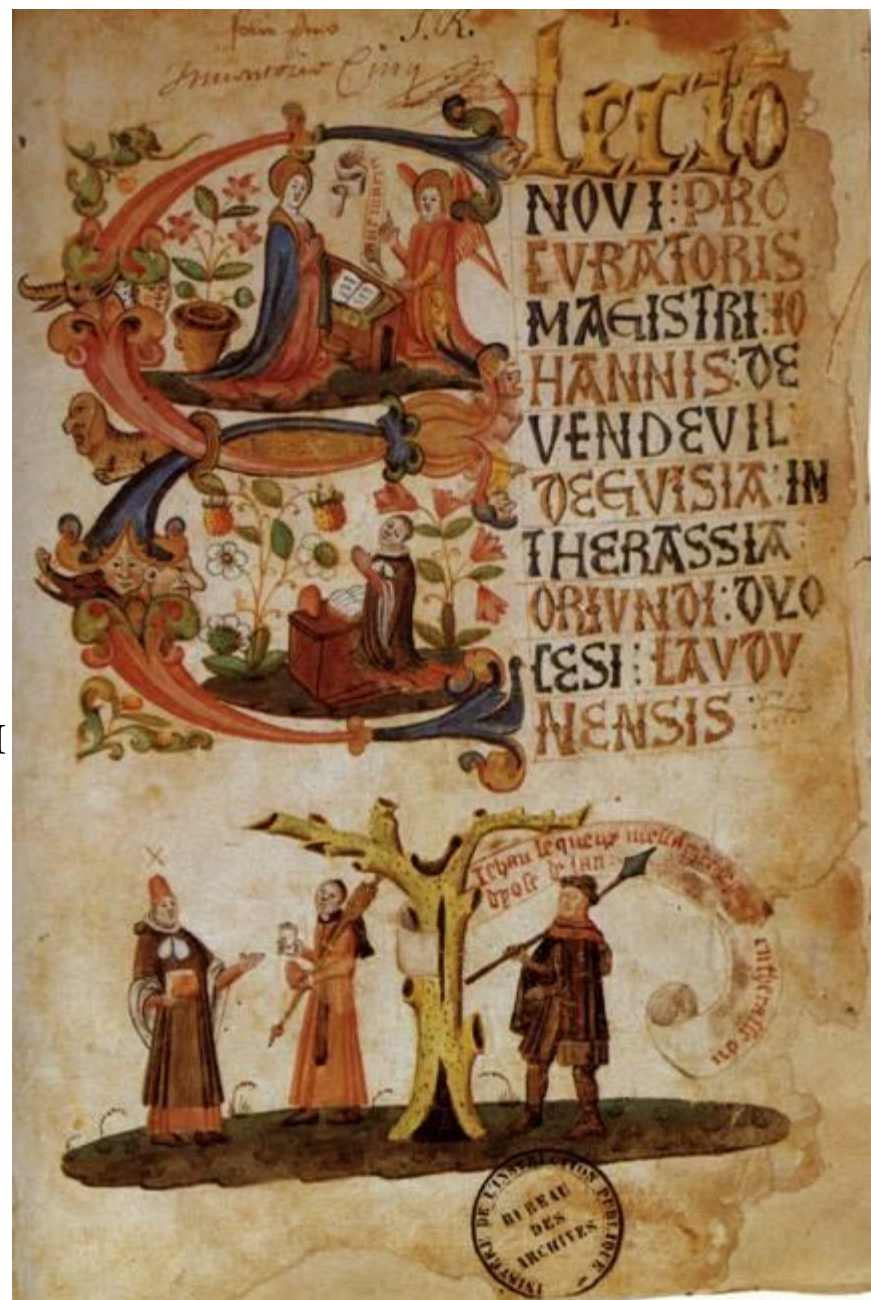 S. R.
lectō
NOVI : PRO
CVRATORIS
MAGISTRI : IO
HANNIS : DE
VENDEVIL
DEGVISIA : IN
THERASSIA
ORIVNDI : DVO
CESI : LAVDV
NENSIS
Jehan lequeux
MINISTÈRE DE L'INSTRUCTION PUBLIQUE
BUREAU
DES
ARCHIVES